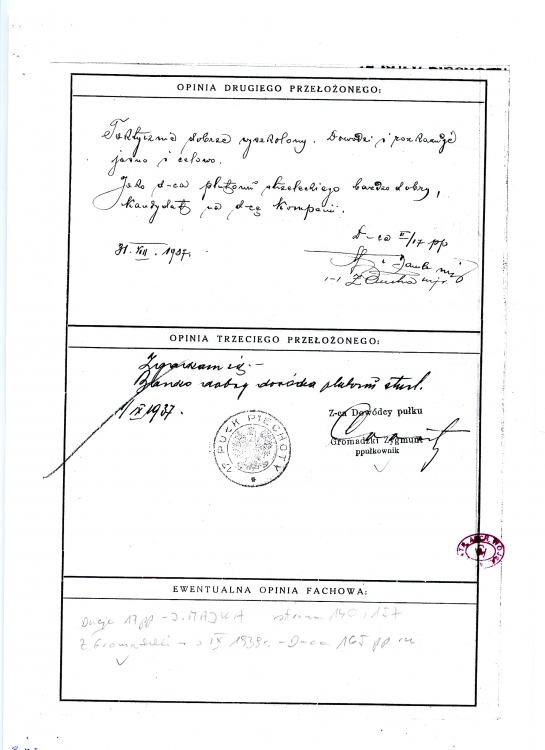 OPINIA DRUGIEGO PRZEŁOŻONEGO:
Taktycznie dobrze wyszkolony. Dowodzi i rozkazuje
jasno i celowo.
Jako d-ca plutonu strzeleckiego bardzo dobry,
kandydat na d-cę kompanii.
D-ca II/17 pp
31. VIII. 1937.
mjr.
OPINIA TRZECIEGO PRZEŁOŻONEGO:
Zgadzam się.-
Bardzo dobry dowódca plutonu strzel.
1/IX 1937.
Z-ca Dowódcy pułku
17 PUŁK PIECHOTY
Gromadzki Zygmunt
ppułkownik
EWENTUALNA OPINIA FACHOWA:
Dzieje 17 pp - J. MAJKA strona 140 i 157
Z. Gromadzki - IX 1939r. - D-ca 165 pp